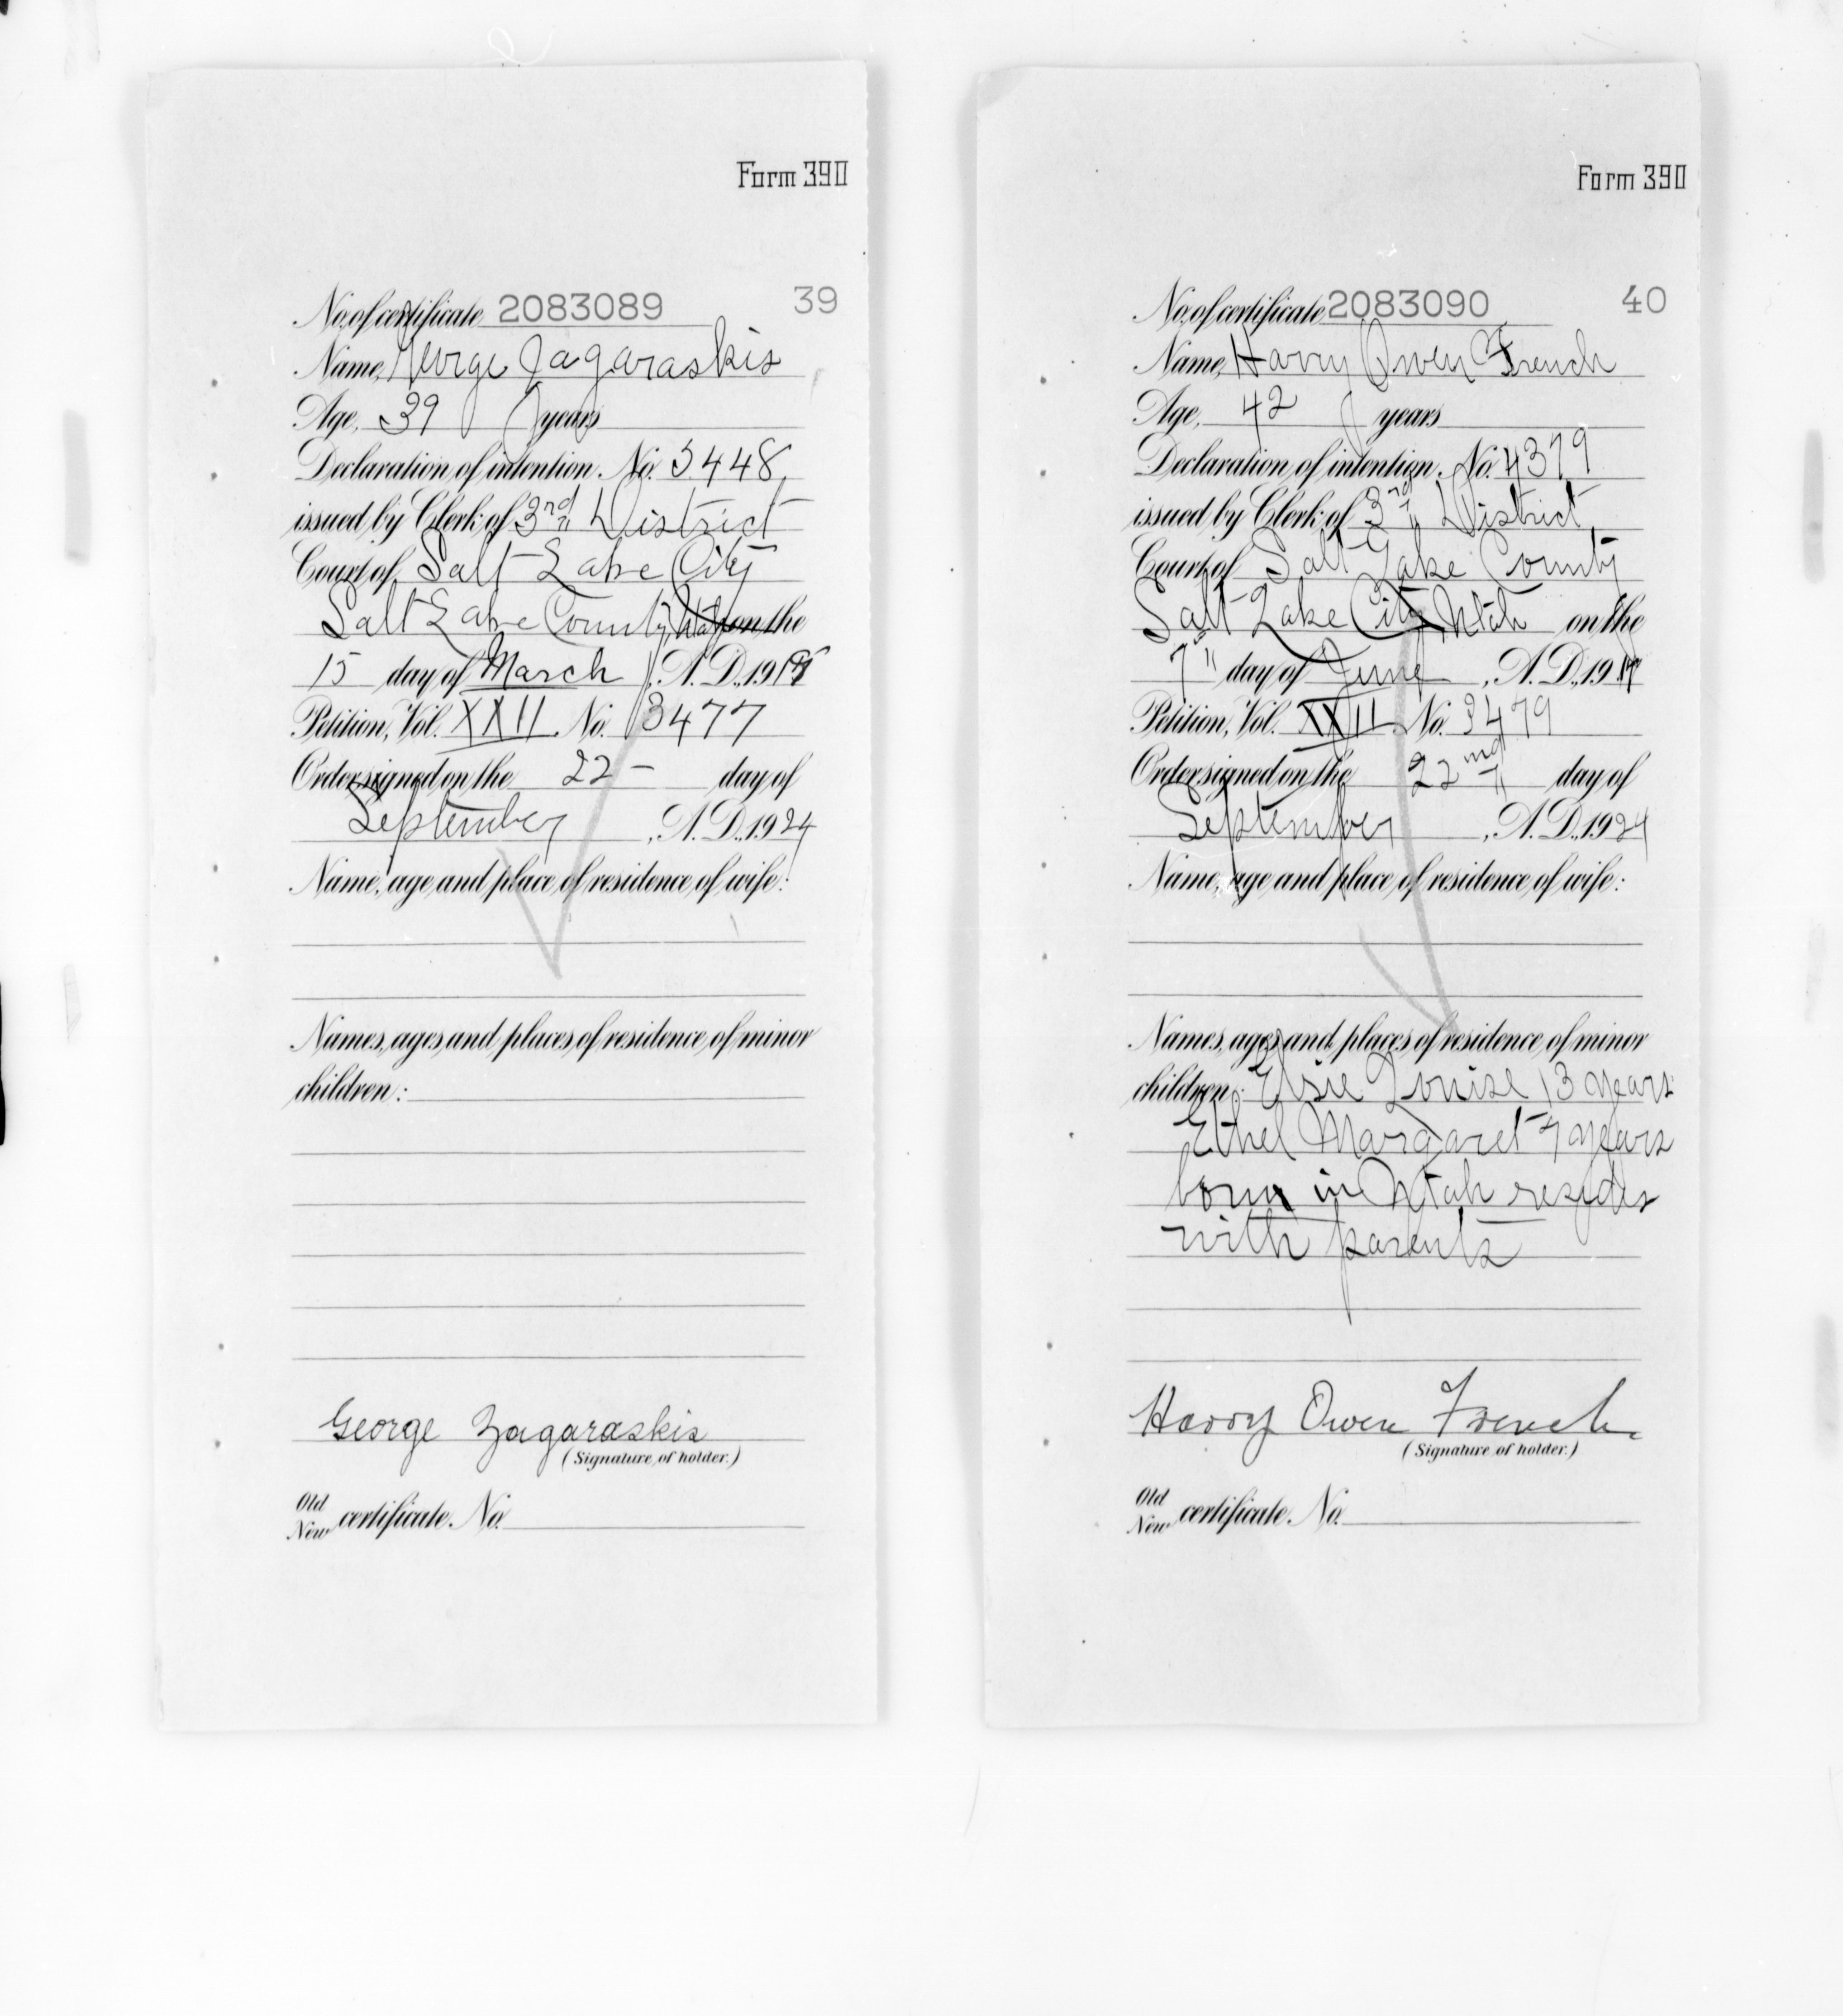 Form 390
No. of certificate 2083089 39
Name, George Zagaraskis
Age, 39 years
Declaration of intention, No. 5448,
issued by Clerk of 3rd District
Court of Salt Lake City
Salt Lake County, Utah on the
15 day of March, A.D., 19
Petition, Vol. XXII No. 3477
Order signed on the 22 – day of
September, A.D., 1924
Name, age and place of residence of wife:
Names, ages and places of residence of minor
children:
George Zagaraskis
(Signature of holder.)
Old
New certificate No.
Form 390
No. of certificate 2083090 40
Name, Harry Owen French
Age, 42 years
Declaration of intention, No. 4379
issued by Clerk of 3rd District
Court of Salt Lake County
Salt Lake City Utah on the
7" day of June, A.D., 1917
Petition, Vol. XXII No. 3479
Order signed on the 22nd day of
September, A.D., 1924
Name, age and place of residence of wife:
Names, ages and places of residence of minor
children: Elsie Louise 13 years
Ethel Margaret 7 years
born in Utah resides
with parents
Harry Owen French
(Signature of holder.)
Old
New certificate No.